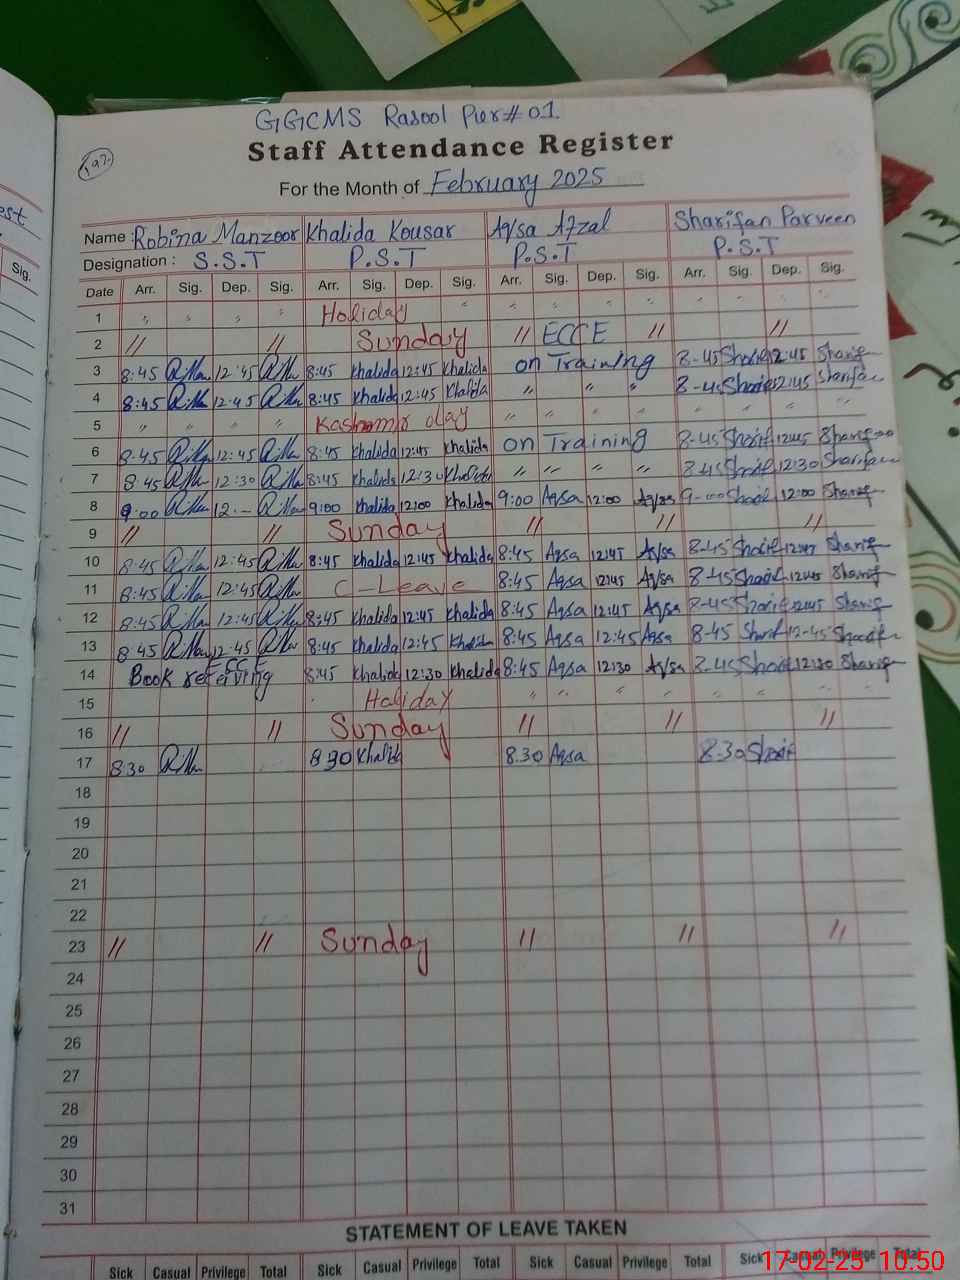 est
Sig.
GGCMS Rasool Pur # 01.
197
Staff Attendance Register
For the Month of February 2025
Name : Robina Manzoor Khalida Kousar Aqsa Afzal Sharifan Parveen
Designation : S.S.T P.S.T P.S.T P.S.T
Date Arr. Sig. Dep. Sig. Arr. Sig. Dep. Sig. Arr. Sig. Dep. Sig. Arr. Sig. Dep. Sig.
1 〃 〃 〃 〃 Holiday 〃 〃 〃 〃 〃 〃 〃 〃 〃
2 // // Sunday // ECCE // //
3 8:45 12:45 8:45 Khalida 12:45 Khalida on Training 8-45 Sharif 12:45 Sharif
4 8:45 12:45 8:45 Khalida 12:45 Khalida 〃 〃 〃 8-45 Sharif 12:45 Sharifan
5 〃 〃 〃 〃 Kashmir day 〃 〃 〃 〃 〃 〃 〃 〃
6 8-45 12:45 8:45 Khalida 12:45 Khalida on Training 8-45 Sharif 12:45 Sharifan
7 8:45 12:30 8:45 Khalida 12:30 Khalida 〃 〃 〃 〃 8-45 Sharif 12:30 Sharifan
8 9:00 12:- 9:00 Khalida 12:00 Khalida 9:00 Aqsa 12:00 Aqsa 9-00 Sharif 12:00 Sharif
9 // // Sunday // // //
10 8:45 12:45 8:45 Khalida 12:45 Khalida 8:45 Aqsa 12:45 Aqsa 8-45 Sharif 12:45 Sharif
11 8:45 12:45 C-Leave 8:45 Aqsa 12:45 Aqsa 8-45 Sharif 12:45 Sharif
12 8:45 12:45 8:45 Khalida 12:45 Khalida 8:45 Aqsa 12:45 Aqsa 8-45 Sharif 12:45 Sharif
13 8:45 12:45 8:45 Khalida 12:45 Khalida 8:45 Aqsa 12:45 Aqsa 8-45 Sharif 12-45 Sharif
ECCE
14 Book reciving 8:45 Khalida 12:30 Khalida 8:45 Aqsa 12:30 Aqsa 8-45 Sharif 12:30 Sharif
15 Haliday 〃 〃 〃 〃 〃 〃 〃 〃
16 // // Sunday // // //
17 8:30 8:30 Khalida 8.30 Aqsa 8-30 Sharif
18
19
20
21
22
23 // // Sunday // // //
24
25
26
27
28
29
30
31
STATEMENT OF LEAVE TAKEN
Sick Casual Privilege Total Sick Casual Privilege Total Sick Casual Privilege Total Sick Casual Privilege Total
17-02-25 10:50